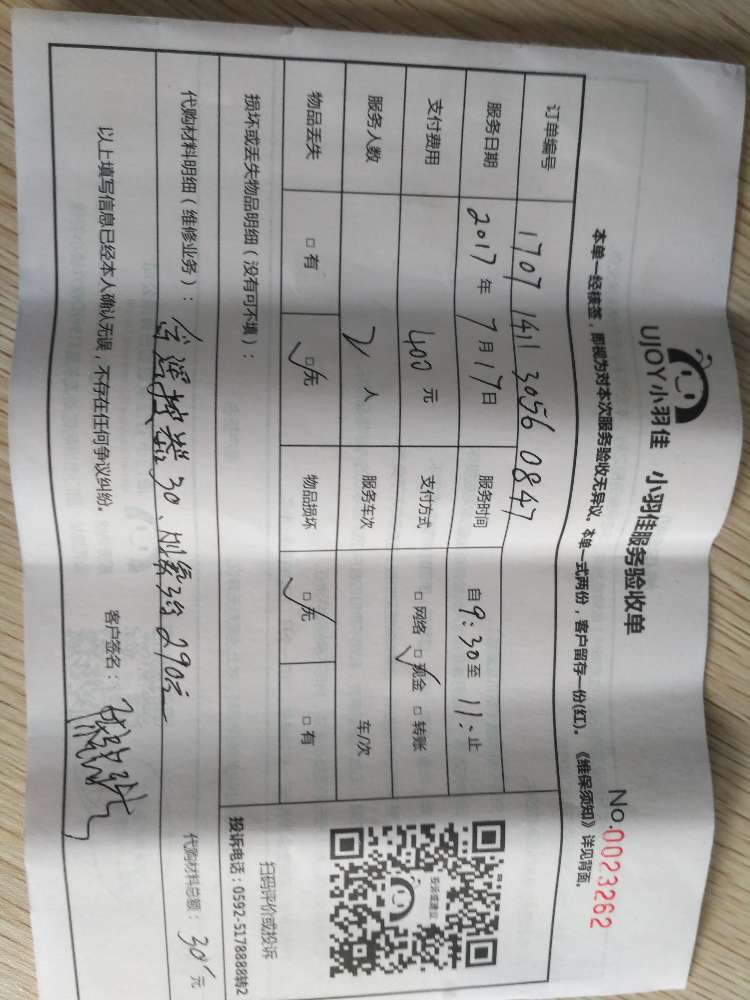 UJOY小羽佳 小羽佳服务验收单
No.0023262
本单一经核签，即视为对本次服务验收无异议。本单一式两份，客户留存一份(红)。《维保须知》详见背面。
订单编号 1707 1411 3056 0847
服务日期 2017年7月17日 服务时间 自9:30至11:止
支付费用 400元 支付方式 □网络 □现金 □转账
服务人数 2人 服务车次 车/次
物品丢失 □有 □无 物品损坏 □无 □有
损坏或丢失物品明细（没有可不填）：
代购材料明细（维修业务）： 30、290元
代购材料总额：30元
以上填写信息已经本人确认无误，不存在任何争议纠纷。
客户签名：
投诉或建议
扫码评价或投诉
投诉电话：0592-5178888转2